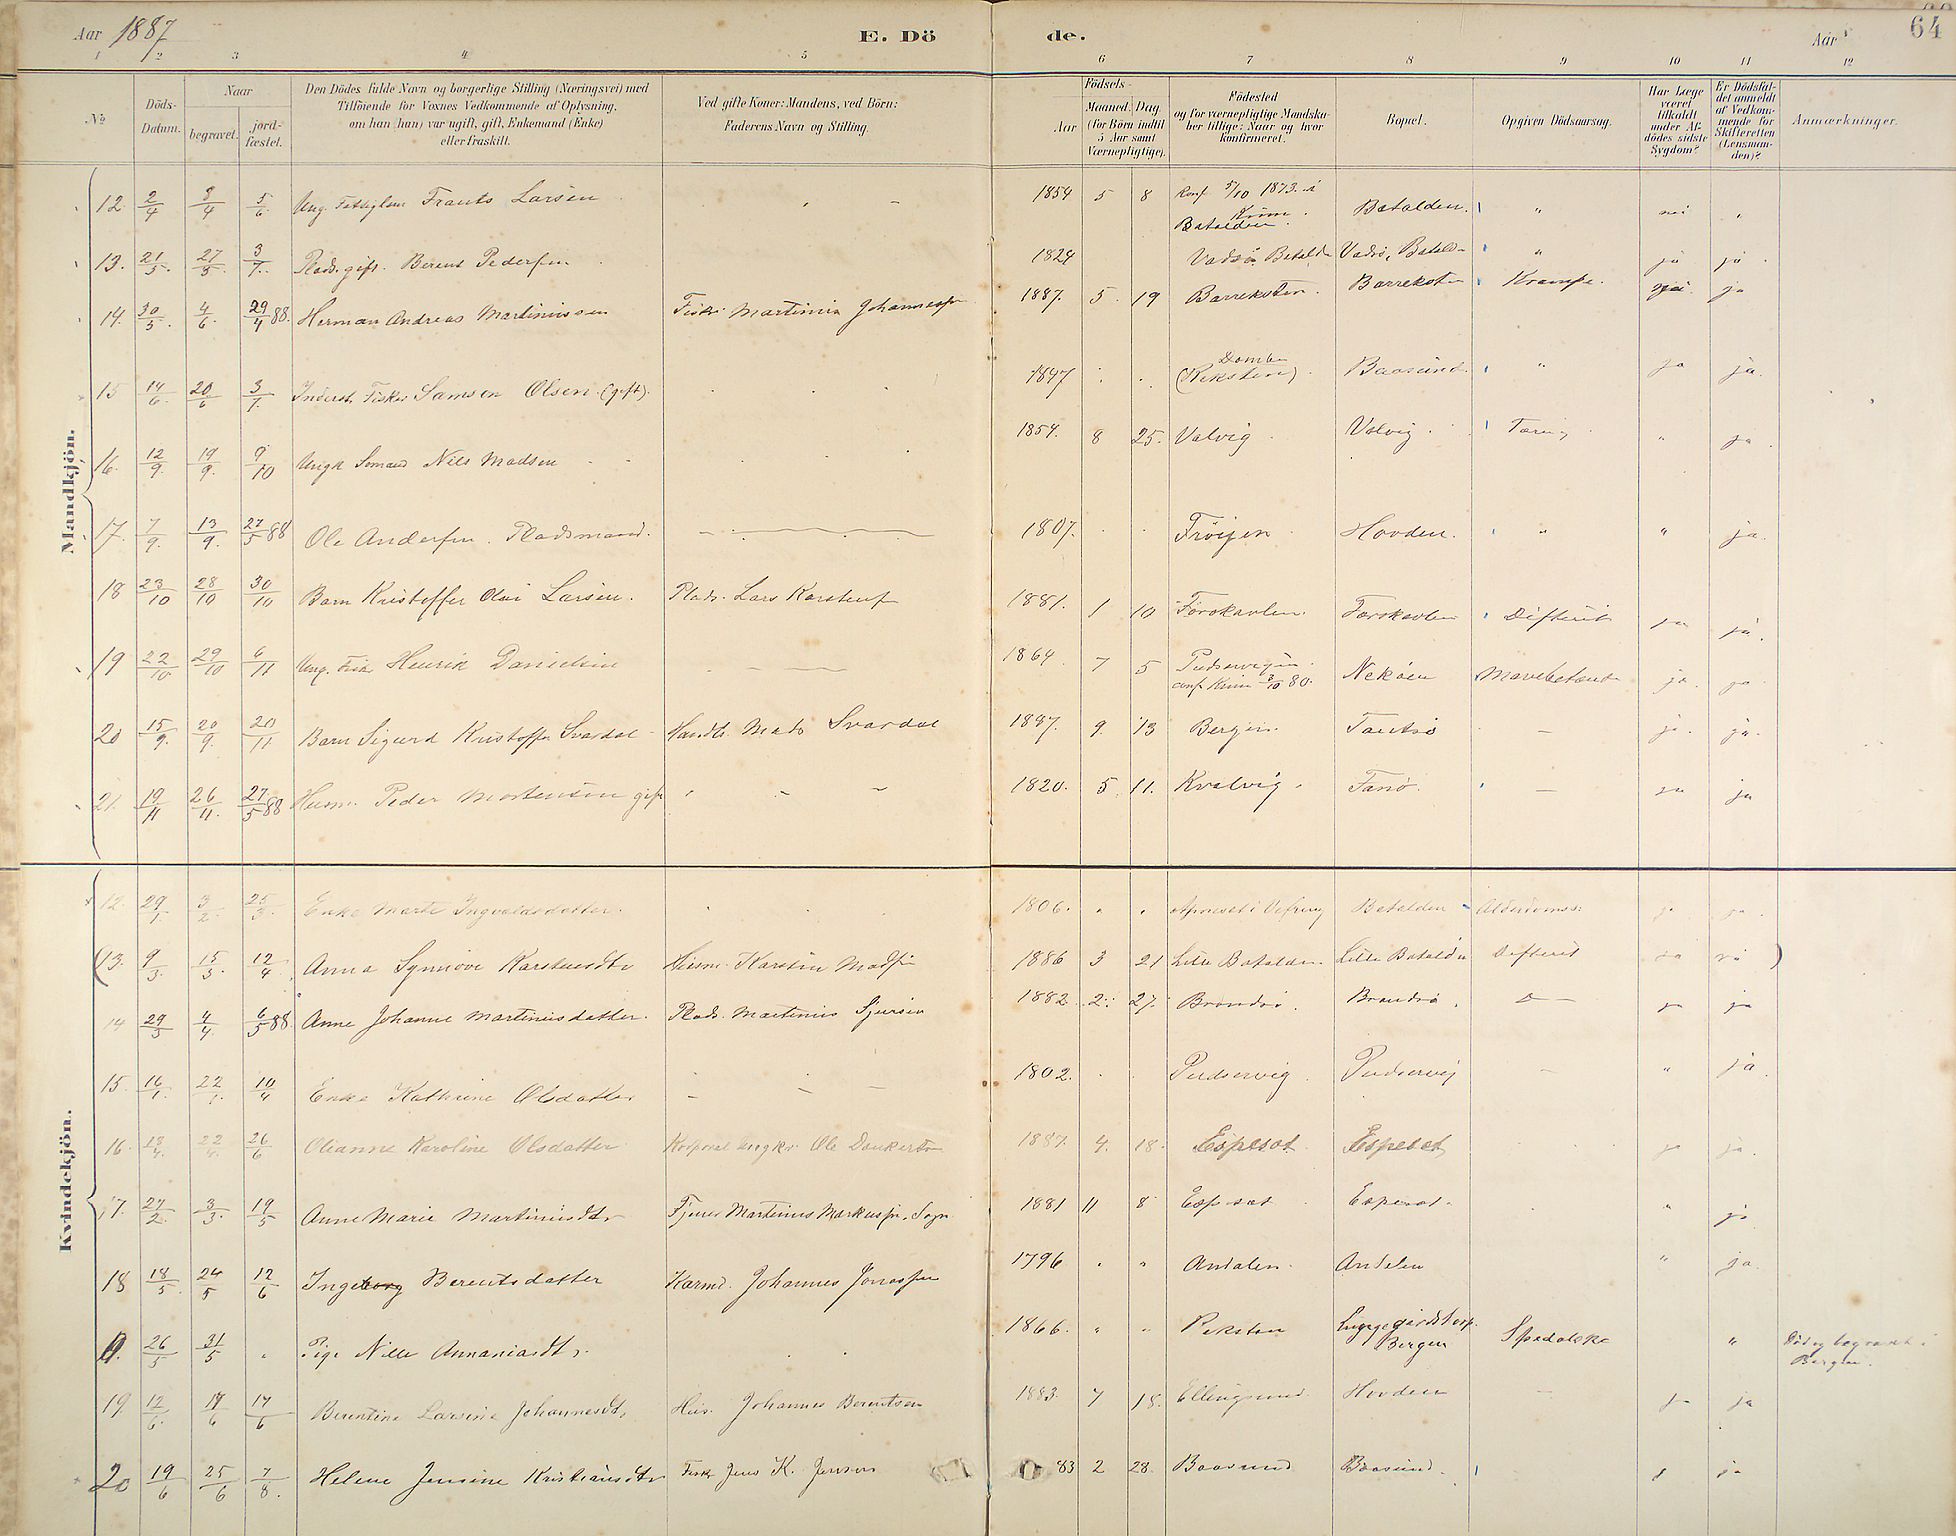 Aar 1887
E. Döde.
Aar
64
1 2 3 4 5 6 7 8 9 10 11 12
№
Döds-Datum.
Naar
begravet.
jord-fæstet.
Den Dödes fulde Navn og borgerlige Stilling (Næringsvei) med
Tilföiende for Voxnes Vedkommende af Oplysning,
om han (hun) var ugift, gift, Enkemand (Enke)
eller fraskilt.
Ved gifte Koner: Mandens, ved Börn:
Faderens Navn og Stilling.
Födsels-
Aar
Maaned. Dag
(for Börn indtil
5 Aar samt
Værnepligtige).
Födested
og for værnepligtige Mandska-
ber tillige: Naar og hvor
konfirmeret.
Bopæl.
Opgiven Dödsaarsag.
Har Læge
været
tilkaldt
under Af-
dödes sidste
Sygdom?
Er Dödsfal-
det anmeldt
af Vedkom-
mende for
Skifteretten
(Lensman-
den)?
Anmærkninger.
Mandkjön.
12. 2/4 8/4 5/6 Ung. Fattiglem Frants Larsen 1854 5 8 Konf. 5/10 1873 i Kinn. Batalden. Batalden. " nei "
13. 21/5. 27/5. 3/7. Plads. gift. Berent Pedersen 1824 Vadsö, Batald Vadsö, Batald " ja ja
14. 30/5. 4/6. 29/4 88. Herman Andreas Martinussen Fisker Martinus Johannessen 1887. 5. 19 Barreksten. Barreksten Krampe. ja
15 14/6. 20/6 3/7. Inderst, Fisker Samson Olsen (gift). 1847 Domba (Reksten). Baasund. " ja ja.
16. 12/9. 19/9. 9/10 Ungk. Sömand Nils Madsen 1854. 8 25. Valvig Valvig. Tæring " ja.
17. 7/9. 13/9. 27/5 88 Ole Andersen. Pladsmand. 1807. Fröien Hovden. " " ja.
18 23/10 28/10 30/10 Barn Kristoffer Olai Larsen. Plads. Lars Karstens 1881. 1 10 Forskavlen. Forskavlen Difterit ja ja.
19 22/10 29/10 6/11 Ung. Fisk. Henrik Danielsen 1864. 7 5 conf. Kinn 3/10 80. Neköen Mavebetænd ja. ja
20 15/9. 20/9. 20/11 Barn Sigurd Kristoffer Svardal Handl. Mats Svardal 9. 13 Bergen. Tantsö — ja. ja.
21. 19/11 26/11. 27/5 88 Husm. Peder Mortensen gift " - - 1820. 5. 11. Kvalvig. Fanö. — ja ja
Kvindekjön.
12. 29/1 3/2. 25/3. Enke Marte Ingvaldsdatter. 1806. " " Batalden Alderdoms. ja ja.
(13. 9/3. 15/3. 12/4 Anna Synnöve Karstensdtr Husm. Karsten Mads 1886 3 21 Lille Batalden. Lille Batalden Difterit ja )
14 29/3 4/4. 6/5 88. Anne Johanne Martinusdatter. Plads. Martinus Sjursen 1882 2. 27. Brandsö. Brandsö. D— ja ja
15. 16/4. 22/4. 10/4 Enke Kathrine Olsdatter - - - 1802. Pudservig. Pudservig - " ja.
16. 18/4. 22/4. 26/6 Olianne Karoline Olsdatter Korporal Ole Dankertsen 1887. 4. 18. Espeset. Espeset ja ja.
17. 27/2. 3/3. 19/5 Anne Marie Martinusdtr Martinus Markussen, Sogn 1881 11 8 Espeset Espeset. " ja
18 18/5. 24/5 12/6 Ingeborg Berentsdatter Kaarmd. Johannes Jonassen 1796 " " Andalen. Andalen " ja.
26/5 31/5 " Pige Nille Ananiasdtr. 1866. " " Reksten Lungegaardshosp. Bergen Spedalske " Död og begravet i Bergen.
19. 12/6. 17/6 17/6 Berentine Larsine Johannesdt. Hus. Johannes Berentsen 1883. 7 18. Ellingsund. Hovden — ja ja
20 19/6 25/6 7/8. Helene Jensine Kristiansdtr Fisk. Jens K. Jensen 83 2 28. Baasund Baasund. ja